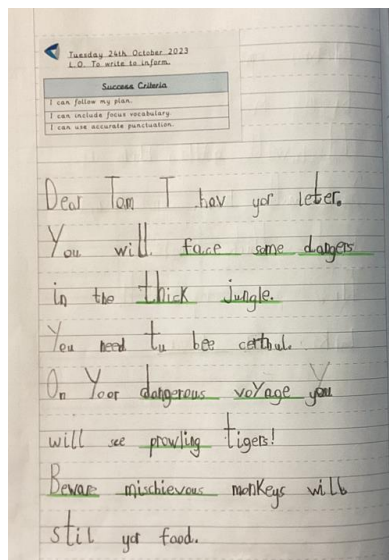 Tuesday 24th October 2023
L.O. To write to inform.
Success Criteria
I can follow my plan.
I can include focus vocabulary.
I can use accurate punctuation.
Dear Tom I hav yor leter.
You will face some dangers
in the thick jungle.
You need tu bee certhul.
On Yoor dangerous voyage you
will see prowling tigers!
Beware mischievous monkeys will
stil yor food.